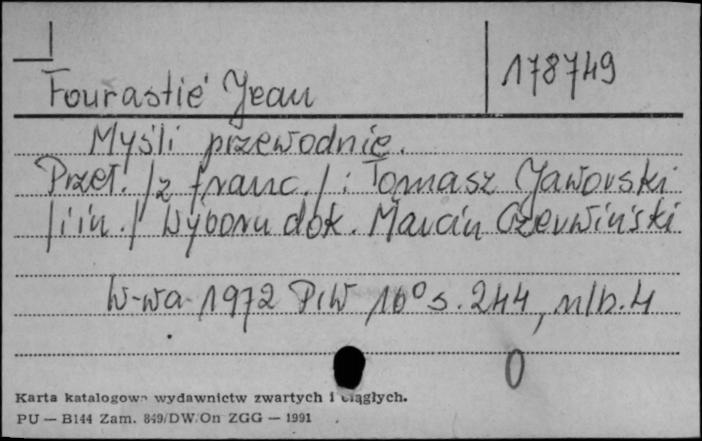 178749
Fourastié Jean
Myśli przewodnie.
Przeł. /z franc./ : Tomasz Jaworski
/i in./ Wyboru dok. Marcin Czerwiński
W-wa 1972 PIW 16° s. 244, nlb. 4
0
Karta katalogowa wydawnictw zwartych i ciągłych.
PU — B144 Zam. 849/DW/On ZGG — 1991